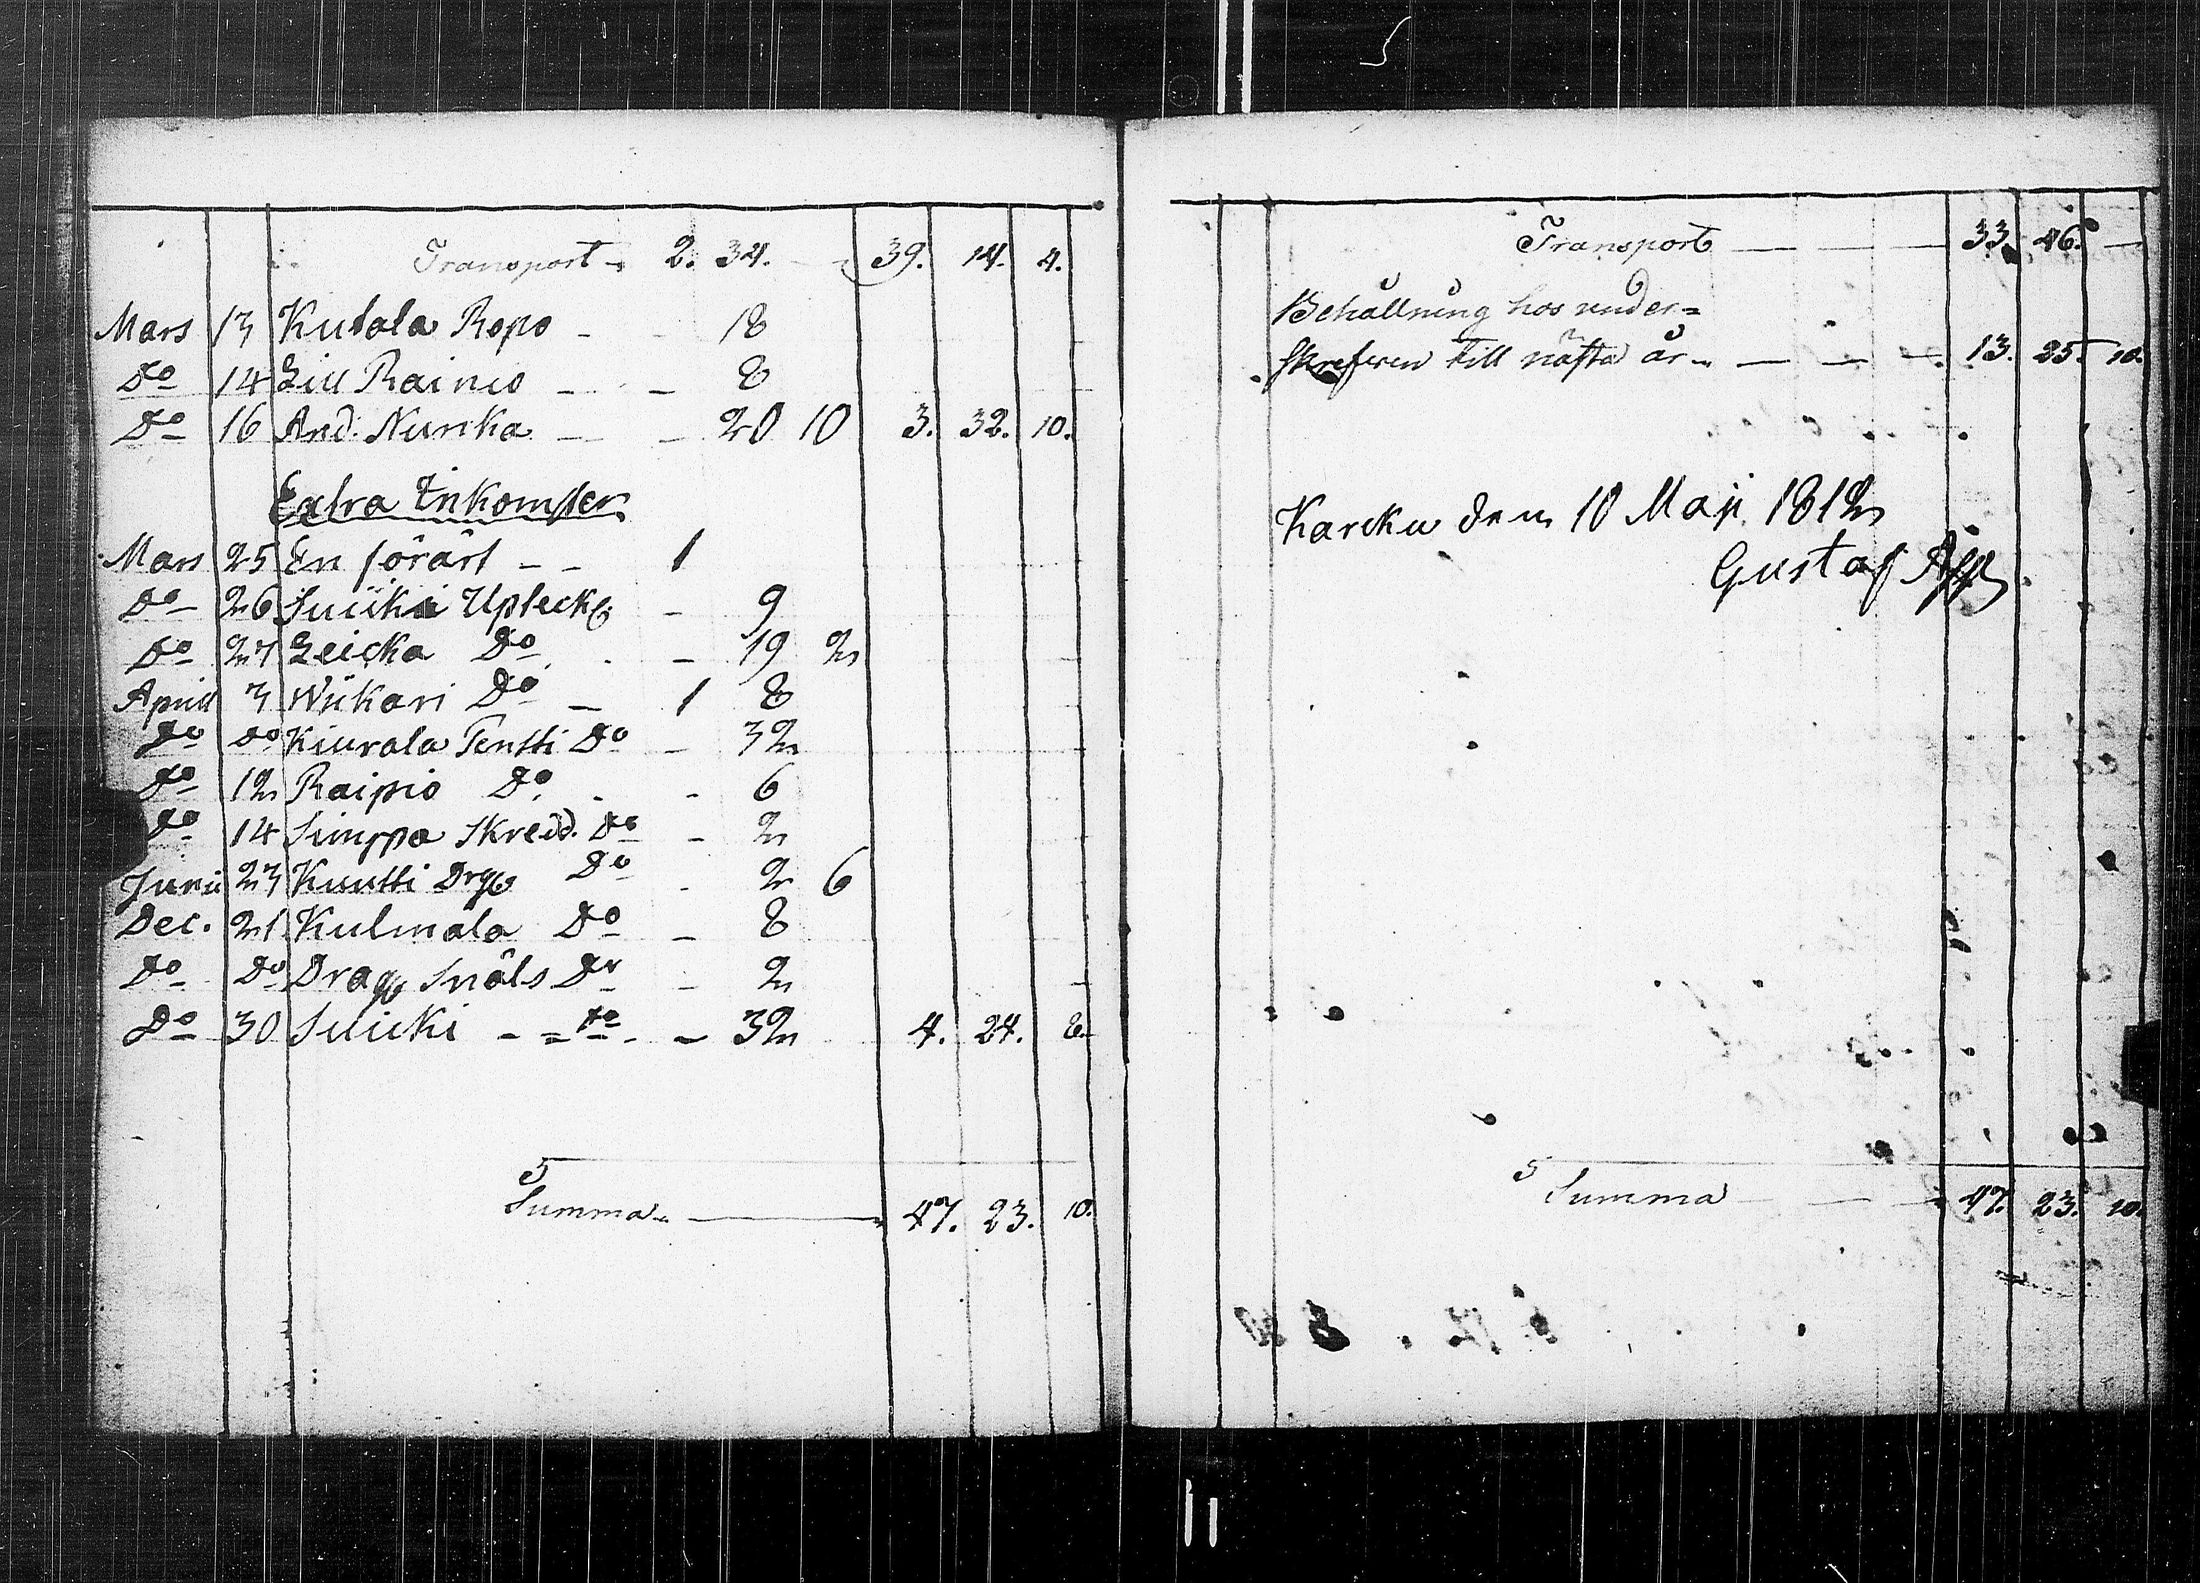 Transport 2. 34. 39. 14. 4.
Mars 13 Kutala Ropo - - 18
Do 14 Lill Rainio - - 8
Do 16 And. Nunka - - 20 10 3. 32. 10.
Extra Inkomster
Mars 25 En förärt - - 1
Do 26 Suiki Upteckn - 9
Do 27 Leicka Do - 19 2
Aprill 3 Wiikari Do - 1 8
Do Do Kiurala Pentti Do - 32
Do 12 Raipio Do - 6
Do 14 Simppa Skredd. Do - 2
Junii 23 Kuutti Drg Do - 2 6
Dec. 21 Kulmala Do - 8
Do Do Drag Snäls Do - 2
Do 30 Suicki - = Do - - 32 4. 24. 8.
Summa 47. 23. 10.
Transport 33. 46. -
Behållning hos under=
skrefven till nästa år 13. 25. 10.
Karcku den 10 Maji 1812
Gustaf
Summa 47. 23. 10.